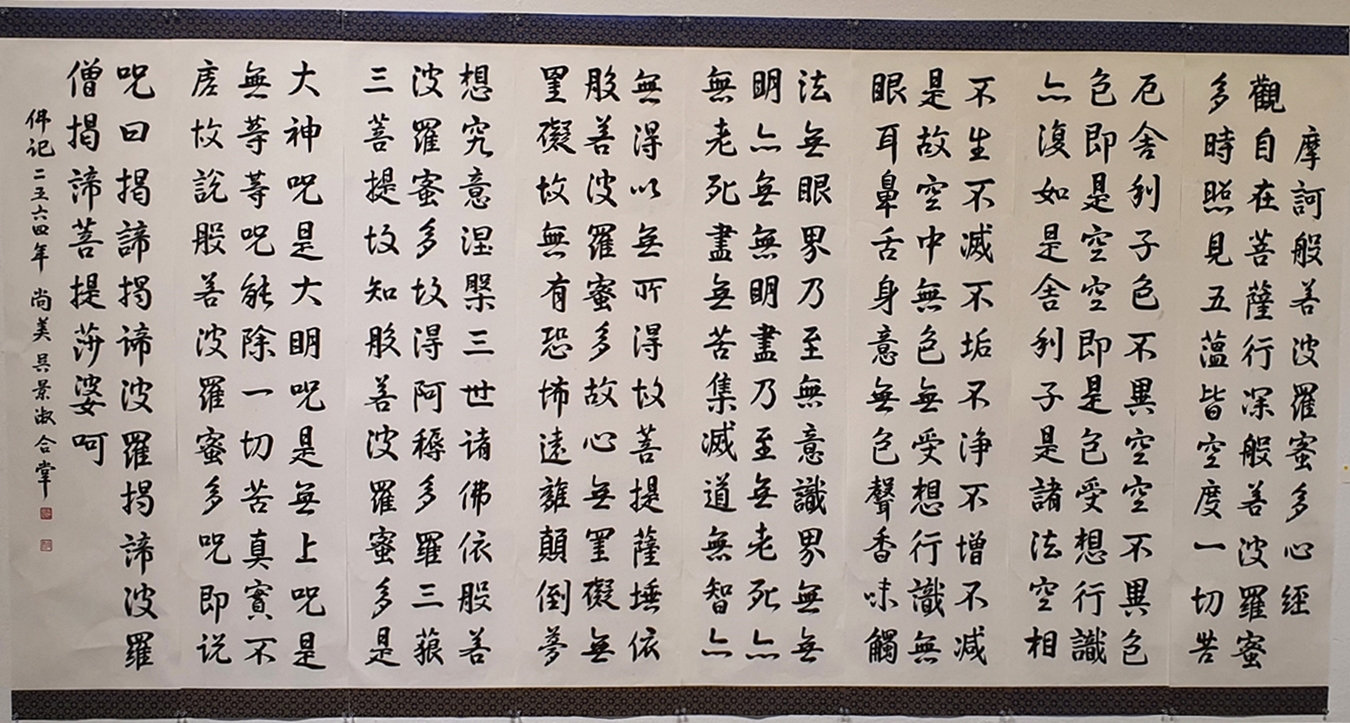 摩訶般若波羅蜜多心經
觀自在菩薩行深般若波羅蜜
多時照見五蘊皆空度一切苦
厄舍利子色不異空空不異色
色即是空空即是色受想行識
亦復如是舍利子是諸法空相
不生不滅不垢不淨不增不減
是故空中無色無受想行識無
眼耳鼻舌身意無色聲香味觸
法無眼界乃至無意識界無無
明亦無無明盡乃至無老死亦
無老死盡無苦集滅道無智亦
無得以無所得故菩提薩埵依
般若波羅蜜多故心無罣礙無
罣礙故無有恐怖遠離顛倒夢
想究竟涅槃三世诸佛依般若
波羅蜜多故得阿耨多羅三藐
三菩提故知般若波羅蜜多是
大神咒是大明咒是無上咒是
無等等咒能除一切苦真實不
虛故說般若波羅蜜多咒即说
咒曰揭諦揭諦波羅揭諦波羅
僧揭諦菩提莎婆呵
佛記二五六四年 尚美 吳景淑 合掌